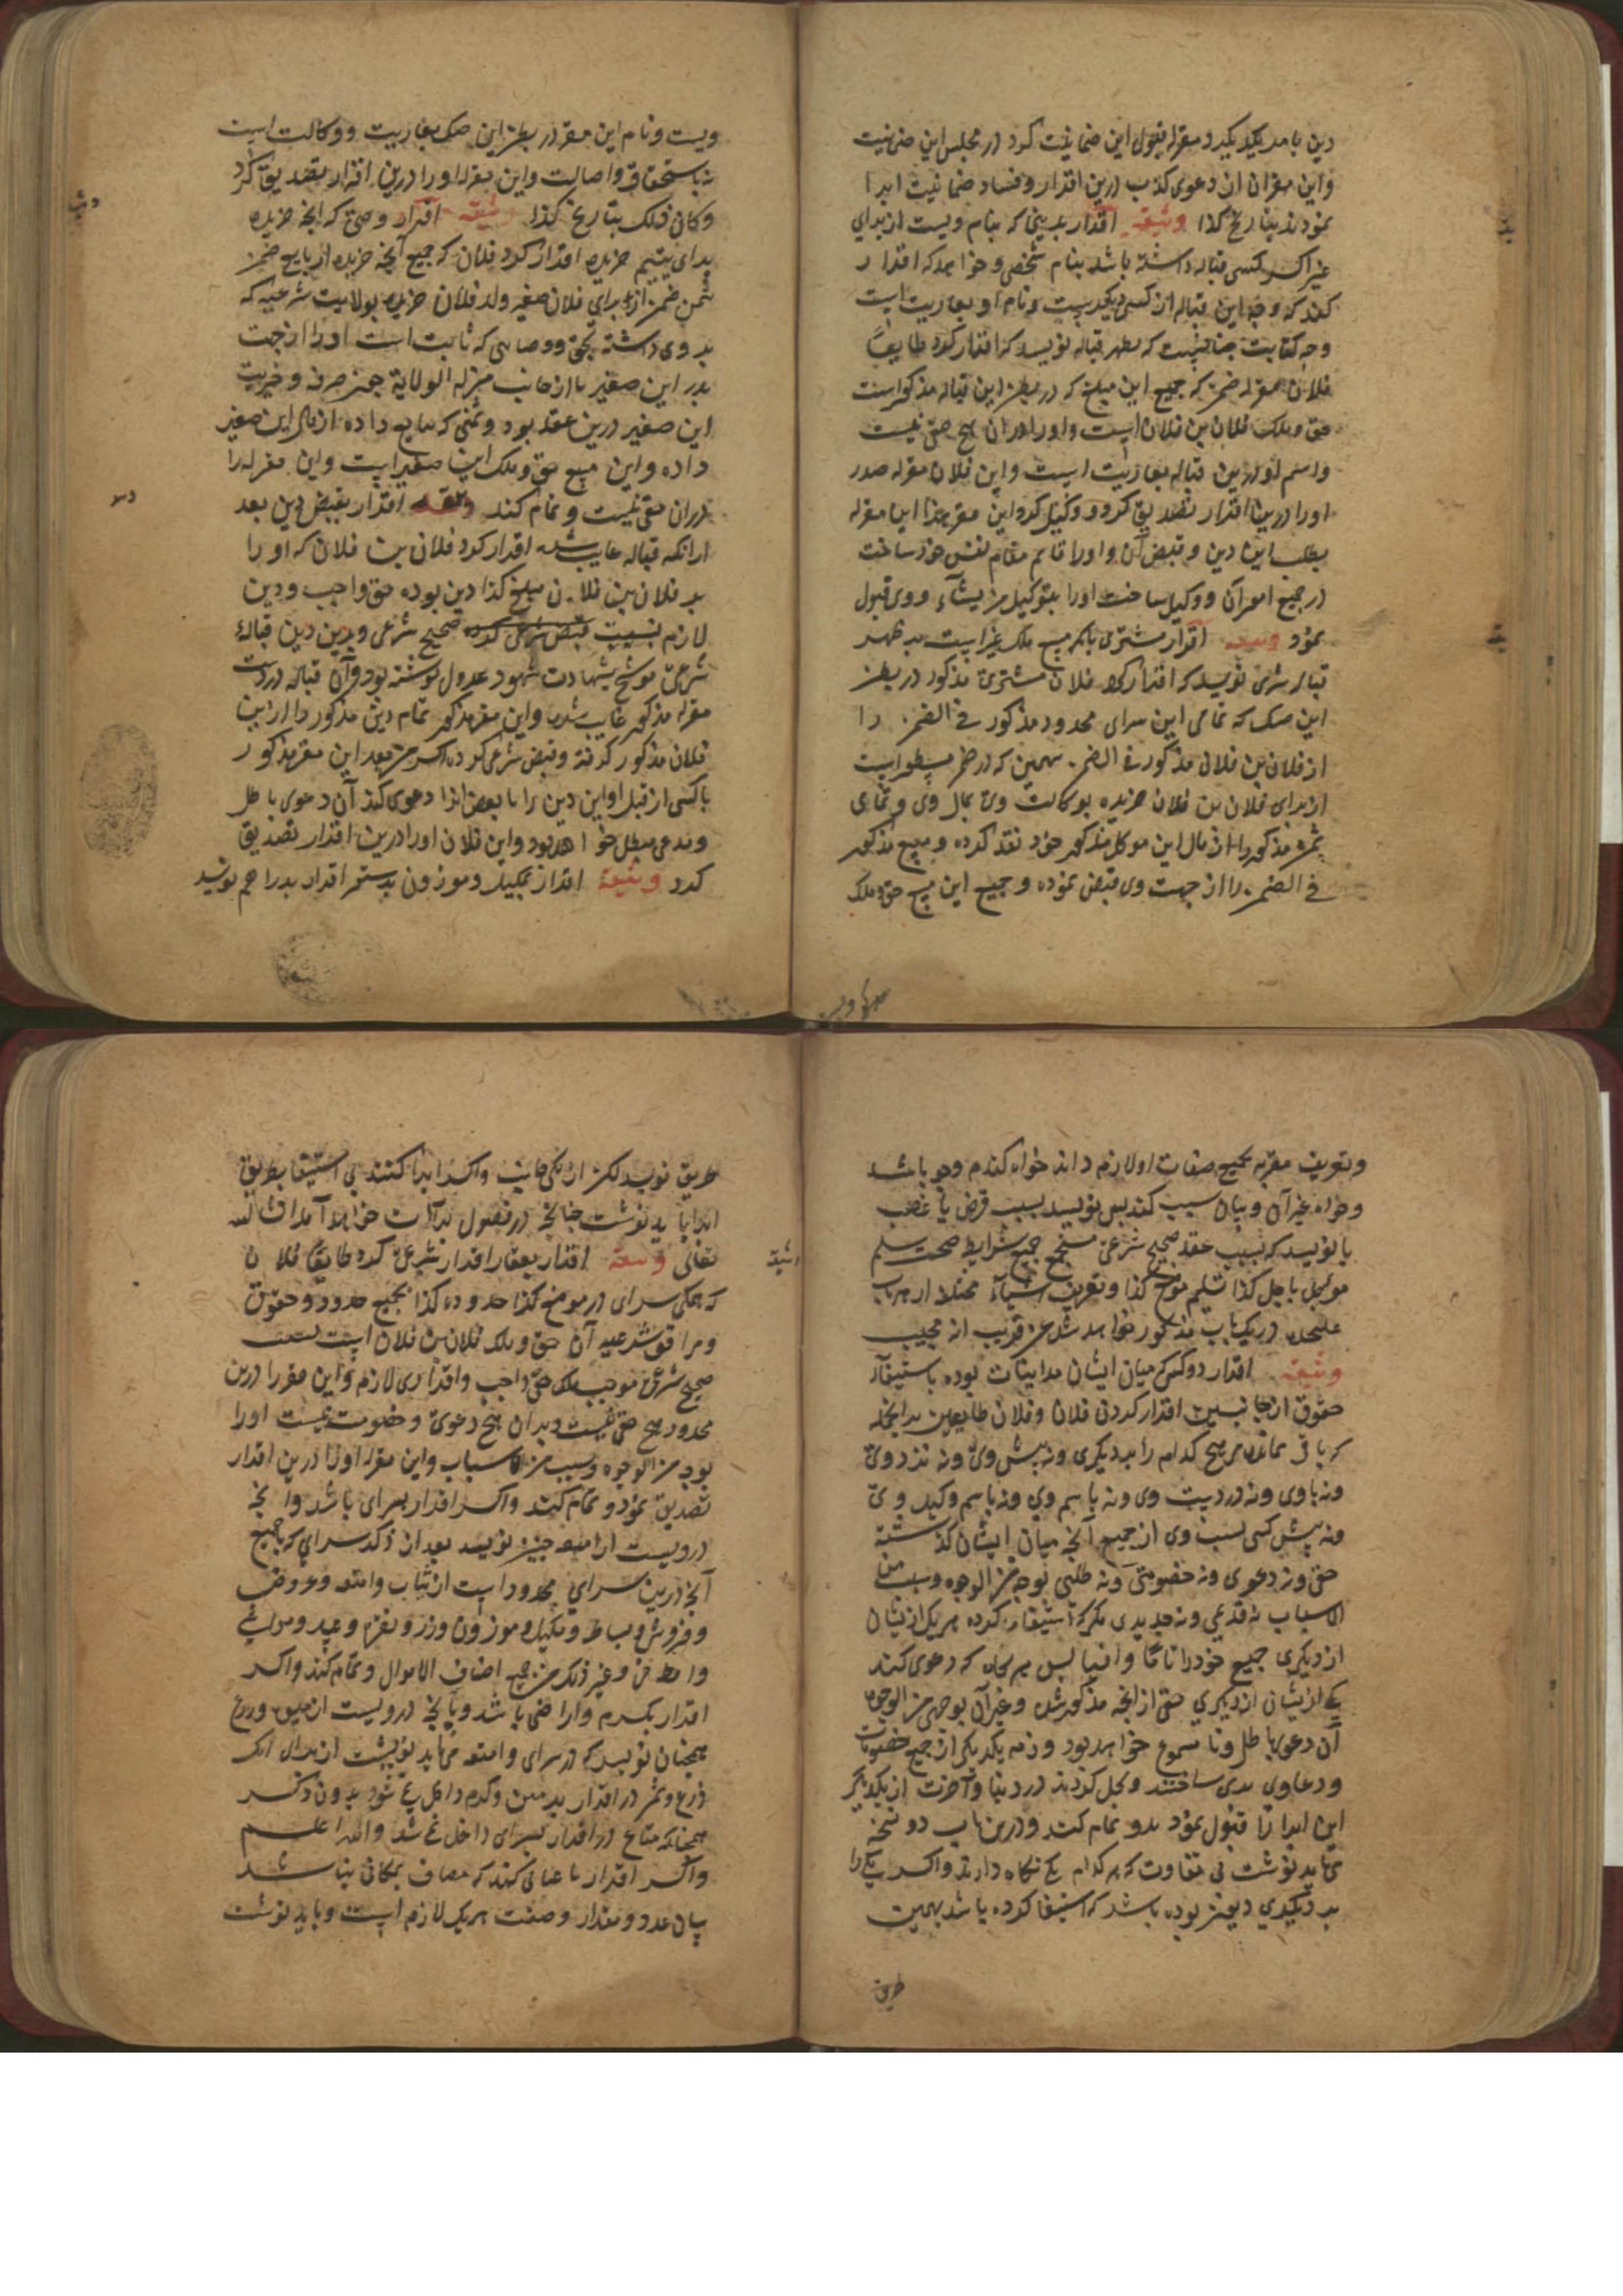 دین بامد یکدیکر و مقرله قبول این ضمانیت کرد در مجلس این ضمانیت
واین مقران از دعوی کذب درین اقرار وفساد ضمانیت ابرا
نمودند بتاریخ کذا وثیقه اقرار بدینی که بنام ویست از برای
غیر اکر کسی قباله داشته باشد بنام شخصی وخواهد که اقرار
کند که وجه این قباله از کسی دیکر ست ونام او بعاریت است
وجه کتابت چنانست که بظهر قباله نویسد که اقرار کرد طایعا
فلان مقرله ضمن که جمیع این مبلغ که در بطن این قباله مذکور است
حق وملک فلان بن فلان است واورا دران هیچ حقی نیست
واسم او درین قباله بعاریت است واین فلان مقرله صدر
اورا درین اقرار تصدیق کرد ووکیل کرد این مقر هذا این مقرله
بطلب این دین وقبض آن واورا قایم مقام نفس خود ساخت
در جمیع امور آن ووکیل ساخت اورا بتوکیل من یشاء ووی قبول
نمود وثیقه اقرار مشتری بانکه مبیع ملک غیر است بر ظهر
قباله شری نویسد که اقرار کرد فلان مشتری مذکور در بطن
این صک که تمامی این سرای محدود مذکور فی الضمن را
از فلان بن فلان مذکور فی الضمن بهمین که در ضمن مسطور است
از برای فلان بن فلان خریده بوکالت وی بمال وی وتمامی
ثمن مذکور را از مال این موکل مذکور خود نقد کرده ومبیع مذکور
فی الضمن را از جهت وی قبض نموده وجمیع این مبیع حق وملک
ویست ونام این مقر در بطن این صک بعاریت ووکالت است
نه باستحقاق واصالت واین مقرله اورا درین اقرار تصدیق کرد
وکان ذلک بتاریخ کذا وثیقه اقرار وصی که آنچه خریده
برای یتیم خریده اقرار کرد فلان که جمیع آنچه خریده از بایع ضمن
بثمن ضمن از برای فلان صغیر ولد فلان خریده بولایت شرعیه که
بر وی داشته بحق ووصایی که ثابت است اورا از جهت
پدر این صغیر یا از جانب من له الولایة جهت صرفه وخیریت
این صغیر درین عقد بود وثمنی که ببایع داده از مال این صغیر
داده واین مبیع حق وملک این صغیر است واین مقرله را
دران حقی نیست وتمام کند وثیقه اقرار بقبض دین بعد
ازانکه قباله غایب شده اقرار کرد فلان بن فلان که او را
بر فلان بن فلان مبلغ کذا دین بوده حق واجب ودین
لازم بسبب صحیح شرعی وبدین دین قبالهٔ
شرعی موشح بشهادت شهود عدول نوشته بود وآن قباله در دست
مقرله مذکور غایب شده واین مقر مذکور تمام دین مذکور را از این
فلان مذکور کرفته وقبض شرعی کرده اکر من بعد این مقر مذکور
یا کسی از قبل او این دین را یا بعض اورا دعوی کند آن دعوی باطل
ومدعی مبطل خواهد بود واین فلان اورا درین اقرار تصدیق
کرد وثیقة اقرار بمکیل وموزون بدستور اقرار بدراهم نویسد
وتعریف مقربه بجمیع صفات او لازم داند خواه کندم وجو باشد
وخواه غیر آن وبیان سبب کند پس نویسد بسبب قرض یا غصب
یا نویسد که بسبب عقد صحیح شرعی مستجمع جمیع شرایط صحت سلم
موجل باجل کذا تسلیم موضع کذا وتعریف اشیآء مختلف از هر باب
علیحده در یکباب مذکور خواهد شد عن قریب انه مجیب
وثیقه اقرار دو کس که میان ایشان مداینات بوده باستیفآء
حقوق از جانبین اقرار کردن فلان وفلان طایعین بدانچه
که باقی نمانده مر هیچ کدام را بر دیکری ونه پیش وی ونه نزد وی
ونه باوی ونه در دست وی ونه باسم وی ونه باسم وکیل وی
ونه پیش کسی بسبب وی از جمیع آنچه میان ایشان کذشته
حق ونه دعوی ونه خصومتی ونه طلبی بوجه من الوجوه وسبب من
الاسباب نه قدیمی ونه جدیدی مکر که استیفاء کرده هر یک ازیشان
از دیکری جمیع خود را تاما وافیا پس هر کاه که دعوی کند
یکی ازیشان از دیکری حقی از آنچه مذکور شد وغیر آن بوجهی من الوجوه
آن دعوی باطل ونا مسموع خواهد بود وذمه یکدیکر از جمیع خصومات
ودعاوی بری ساختند وبحل کردند در دنیا وآخرت از یکدیکر
این ابرا را قبول نمود بدو تمام کند ودرین باب دو نسخه
می باید نوشت بی تفاوت که هر کدام یکی نکاه دارند واکر یکی را
بر دیکری دینی بوده باشد که استیفا کرده باشد بهمین
طریق
طریق نویسد لکن از یکی جانب واکر ابرا کنند بی استیفا بطریق
ابرا باید نوشت چنانچه در فصول برآات خواهد آمد ان شاالله
تعالی وثیقه اقرار بعقار اقرار شرعی کرد طایعا فلان
که همکی سرای در موضع کذا حدوده کذا بجمیع حدود وحقوق
ومرافق شرعیه آن حق وملک فلان بن فلان است بسبب
صحیح شرعی موجب ملک حق واجب واقراری لازم واین مقر را درین
محدود هیچ حقی نیست وبران هیچ دعوی وخصومت نیست اورا
بوجه من الوجوه وسبب من الاسباب واین مقرله اورا درین اقرار
تصدیق نمود وتمام کند واکر اقرار بسرای باشد وآنچه
درویست از امتعه چنین نویسد بعد از ذکر سرای که بجمیع
آنچه درین سرای محدود است از ثیاب وامتعه وعروض
وفروش وبساط ومکیل وموزون وزر ونقره وعبید ومواشی
وغیر ذلک من جمیع اصناف الاموال وتمام کند واکر
اقرار بکرم واراضی باشد وبآنچه درویست از میوه وزرع
همچنان نویسد که در سرای وامتعه می باید نوشت از برای آنک
زرع وثمر در اقرار بزمین وکرم داخل نمی شود بدون ذکر
همچنانکه متاع در اقرار بسرای داخل نمی شد والله اعلم
واکر اقرار باعیانی کنند که مضاف بمکانی نباشد
بیان عدد ومقدار وصفت هر یک لازم است وباید نوشت
وثیقه